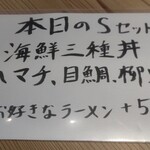 本日のSセット
海鮮三種丼
ハマチ、目鯛、柳
お好きなラーメン +5